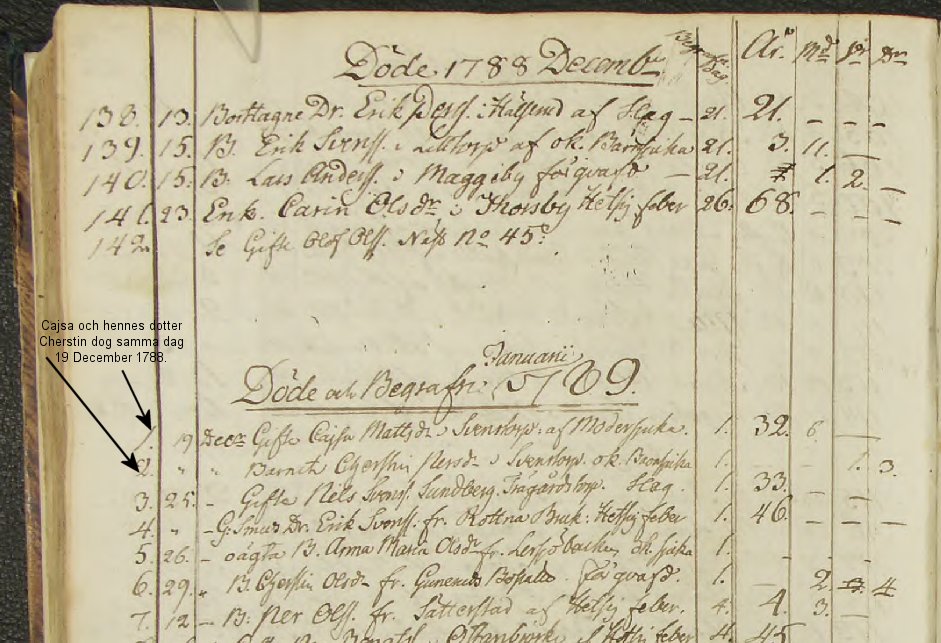 Döde 1788 Decemb
År. Md Dr
138. 13. Borttagne Dr. Erik Perss. i af Slag - 21. 21. - - -
139. 15. B. Erik Svenss. i af ok. Barnsjuka 21. 3. 11. -
140. 15. B. Lars Anderss. i Maggeby förqvafd - 21. 1. 2. -
141. 23. Enk. Carin Olsdr i Thorsby Hetsig feber 26. 68. - - -
142. Se Gifte Olof Olss. Näss No 45.
Cajsa och hennes dotter
Cherstin dog samma dag
19 December 1788.
Januarii
Döde och Begrafn: 1789.
1. 19 Decr Gifta Cajsa Mattsdr Svenstorp. af Modersjuka. 1. 32. 6. -
2. " " Barnet Cherstin Persdr i Svenstorp. ok. Barnsjuka 1. - - 1. 3.
3. 25. - Gifte Nils Svenss. Sundberg. Trägårdstorp. Slag. 1. 33. - -
4. " - Dr. Erik Svenss. fr. Rottna Bruk. Hetsig feber 1. 46. - - -
5. 26. - oägta B. Anna Maria Olsdr fr. ok. sjuka 1. - -
6. 29. " B. Cherstin Olsdr fr. förqvafd. 1. - 2. 4
7. 12 - B. Per Olss. fr. Sätterstad af Hetsig feber. 4. 4. 3. -
feber 4. 45.